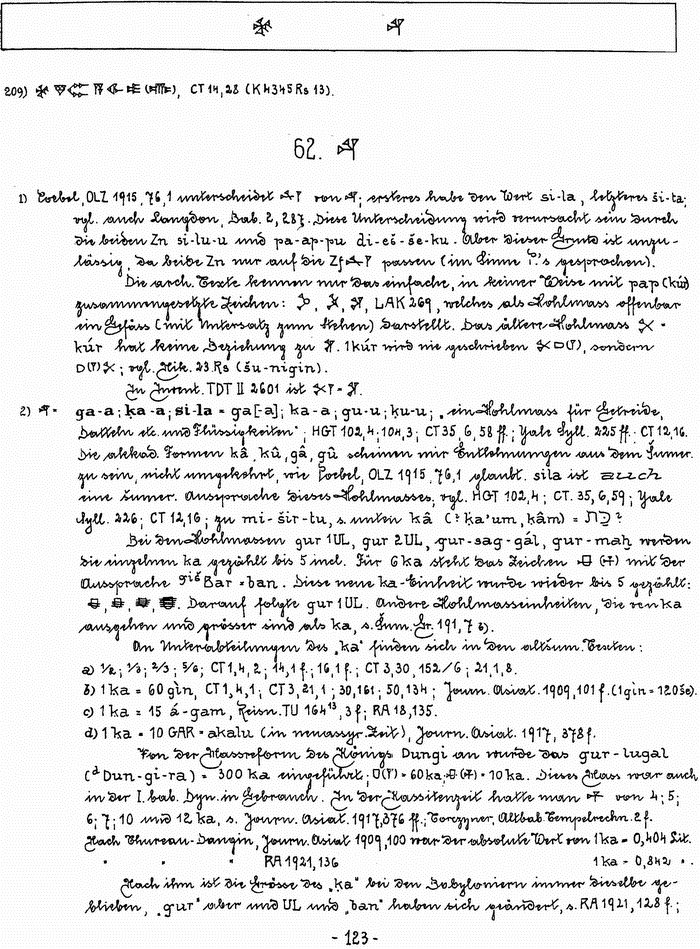 209) CT 14,28 (K 4345 Rs 13).
62.
1) Poebel, OLZ 1915, 76,1 unterscheidet von ; ersteres habe den Wert si-la, letzteres ši-ta;
vgl. auch Langdon, Bab. 2, 287. Diese Unterscheidung wird verursacht sein durch
die beiden Zn si-lu-u und pa-ap-pu di-eš-še-ku. Aber dieser Grund ist unzu-
lässig, da beide Zn nur auf die Zf passen (im Sinne Ľ.'s gesprochen).
Die arch. Texte kennen nur das einfache, in keiner Weise mit pap (kúr)
zusammengesetzte Zeichen: , , , LAK 269, welches als Hohlmass offenbar
ein Gefäss (mit Untersatz zum Stehen) darstellt. Das ältere Hohlmass =
kúr hat keine Beziehung zu . 1 kúr wird nie geschrieben , sondern
; vgl. Nik. 23 Rs (šu-nigin).
In Invent. TDT II 2601 ist = .
2) = ga-a; ḳa-a; si-la = ga[-a]; ka-a; gu-u; ḳu-u; „ein Hohlmass für Getreide,
Datteln etc. und Flüssigkeiten"; HGT 102,4; 104,3; CT 35,6, 58 ff.; Yale Syll. 225 ff.; CT 12,16.
Die akkad. Formen kâ, kû, gâ, gû scheinen mir Entlehnungen aus dem Sumer.
zu sein, nicht umgekehrt, wie Poebel, OLZ 1915, 76,1 glaubt. sila ist auch
eine sumer. Aussprache dieses Hohlmasses, vgl. HGT 102,4; CT. 35,6,59; Yale
Syll. 226; CT 12,16; zu mi-šir-tu, s. unten kâ (? ḳa'um, ḳâm) =
Bei den Hohlmassen gur 1UL, gur 2UL, gur-sag-gál, gur-maḫ werden
die einzelnen ka gezählt bis 5 incl. Für 6 ka steht das Zeichen mit der
Aussprache giš Bar = ban. Diese neue ka-Einheit wurde wieder bis 5 gezählt:
, , , . Darauf folgte gur 1UL. Andere Hohlmasseinheiten, die von ka
ausgehen und grösser sind als ka, s. Šum. Gr. 191, 7 b).
An Unterabteilungen des „ka" finden sich in den altšum. Texten:
a) 1/2; 1/3; 2/3; 5/6; CT 1,4, 2; 14,1 f.; 16,1 f.; CT 3,30, 152/6; 21,1,8.
b) 1 ka = 60 gìn, CT 1,4,1; CT 3,21,1; 30,161; 50,134; Journ. Asiat. 1909, 101 f. (1 gìn = 120 še).
c) 1 ka = 15 á-gam, Reisn. TU 164 13, 3 f; RA 18,135.
d) 1 ka = 10 GAR = akalu (in neuassyr. Zeit), Journ. Asiat. 1917, 378 f.
Von der Massreform des Königs Dungi an wurde das gur-lugal
(d Dun-gi-ra) = 300 ka eingeführt; = 60 ka; = 10 ka. Dieses Mass war auch
in der I. bab. Dyn. in Gebrauch. In der Kassitenzeit hatte man von 4; 5;
6; 7; 10 und 12 ka, s. Journ. Asiat. 1917, 376 ff.; Torczyner, Altbab. Tempelrechn. 2 f.
Nach Thureau-Dangin, Journ. Asiat 1909, 100 war der absolute Wert von 1 ka = 0,404 Lit.
" " " RA 1921, 136 1 ka = 0,842 " .
Nach ihm ist die Grösse des „ḳa" bei den Babyloniern immer dieselbe ge-
blieben, „gur" aber und UL und „ban" haben sich geändert, s. RA 1921, 128 f.;
- 123 -